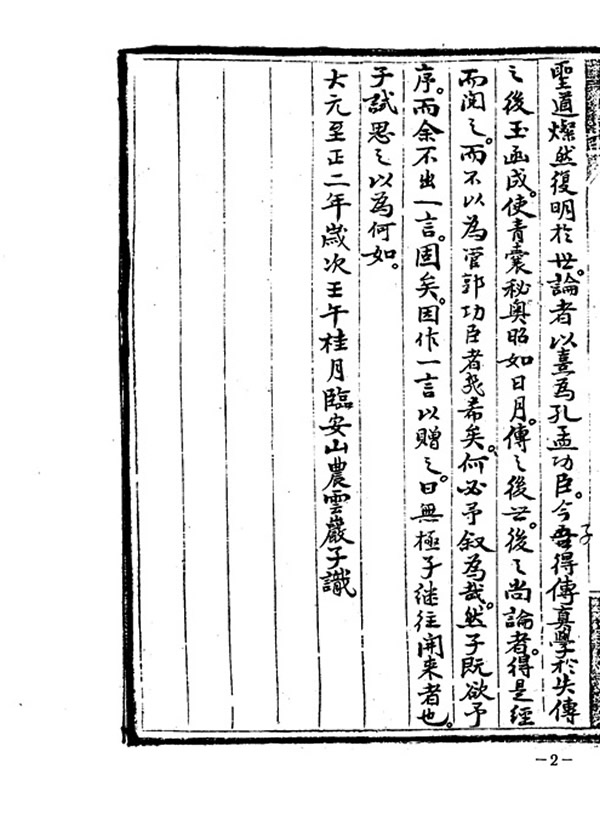 聖道燦然復明於世。論者以熹為孔孟功臣。今吾子得傳真學於失傳
之後玉函成。使青囊秘奧昭如日月。傳之後世。後之尚論者。得是經
而閱之。而不以為管郭功臣者幾希矣。何必予叙為哉。然子既欲予
序。而余不出一言。固矣。因作一言以贈之。曰無極子继往開来者也。
子試思之以為何如。
大元至正二年歲次壬午桂月臨安山農雲巖子識
-2-